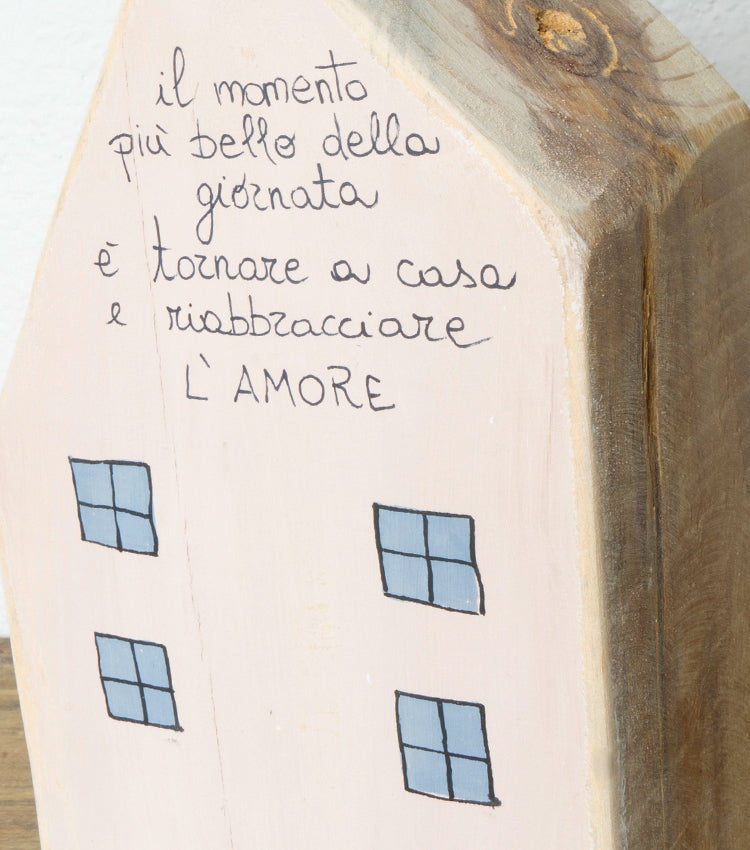 il momento
più bello della
giornata
è tornare a casa
e riabbracciare
L'AMORE